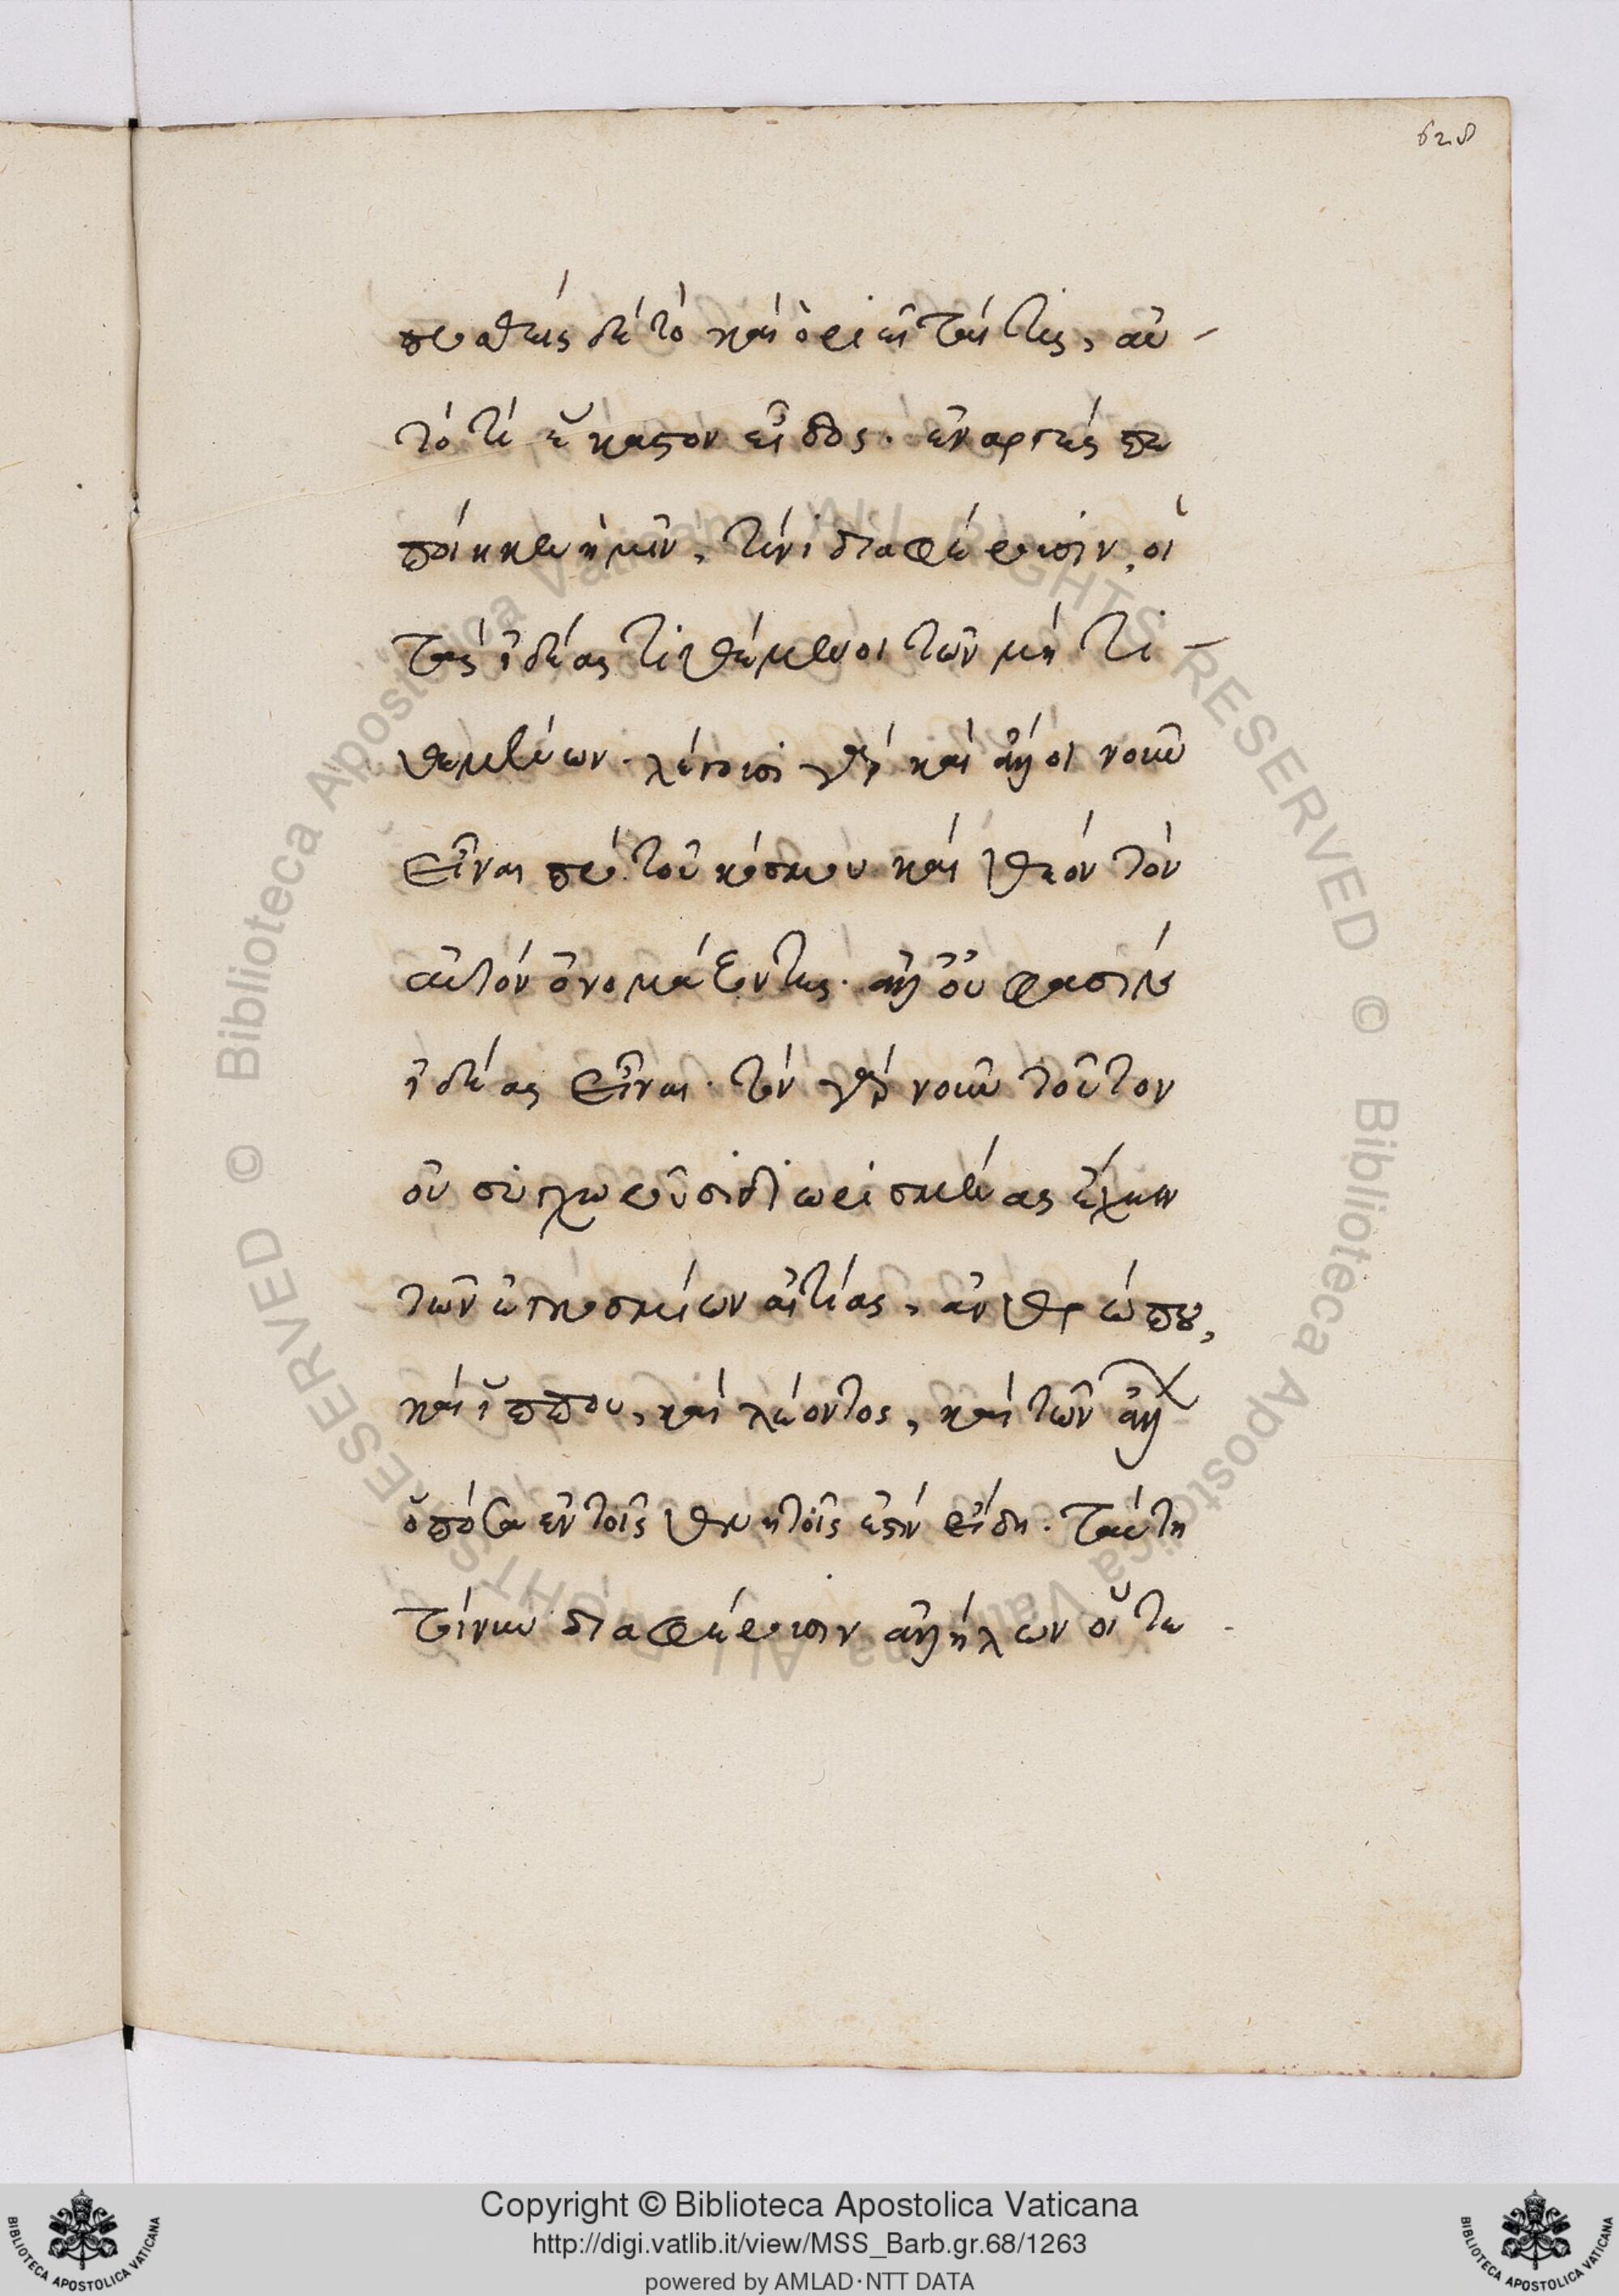 628
προσθεὶς δὲ τὸ καὶ ὁριεῖται τίς, αὐ-
τό τι ἕκαστον εἶδος. ἐναργὲς πε
ποίηκεν ἡμῖν, τίνι διαφέρουσιν, οἱ
τὰς ἰδέας τιθέμενοι τῶν μὴ τι-
θεμένων. λέγουσι γὰρ καὶ ἄλλοι νοῦν
εἶναι πρὸ τοῦ κόσμου καὶ θεὸν τὸν
αὐτὸν ὀνομάζοντες. ἀλλ' οὔ φασιν
ἰδέας εἶναι. τὸν γὰρ νοῦν τοῦτον
οὐ συγχωροῦσι διωρισμένας ἔχειν
τῶν ἐγκοσμίων αἰτίας, ἀνθρώπου,
καὶ ἵππου, καὶ λέοντος, καὶ τῶν ἄλλων
ὁπόσα ἐν τοῖς θνητοῖς ἐστὶν εἴδη. ταύτῃ
τοίνυν διαφέρουσιν ἀλλήλων οἵ τε
Copyright © Biblioteca Apostolica Vaticana
http://digi.vatlib.it/view/MSS_Barb.gr.68/1263
powered by AMLAD·NTT DATA
BIBLIOTECA APOSTOLICA VATICANA
BIBLIOTECA APOSTOLICA VATICANA
© Biblioteca Apostolica Vaticana ALL RIGHTS RESERVED
© Biblioteca Apostolica Vaticana ALL RIGHTS RESERVED